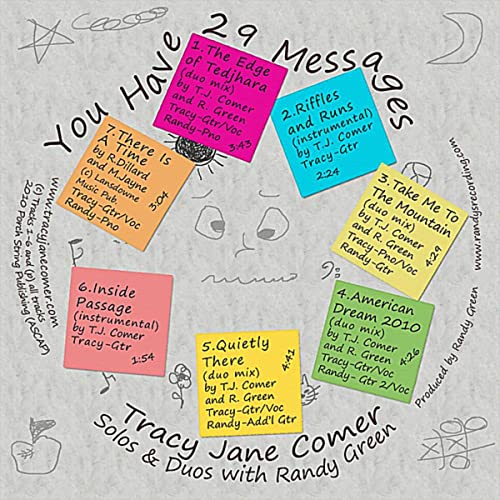 You Have 29 Messages
1.The Edge
of Tedjhara
(duo mix)
by T.J. Comer
and R. Green
Tracy-Gtr/Voc
Randy-Pno
3:43
2.Riffles
and Runs
(instrumental)
by T.J. Comer
Tracy-Gtr
2:24
3.Take Me To
The Mountain
(duo mix)
by T.J. Comer
and R. Green
Tracy-Pno/Voc
Randy-Gtr
4:29
4.American
Dream 2010
(duo mix)
by T.J. Comer
and R. Green
Tracy-Gtr/Voc
Randy- Gtr 2/Voc
4:26
5.Quietly
There
(duo mix)
by T.J. Comer
and R. Green
Tracy-Gtr/Voc
Randy-Add'l Gtr
4:41
6.Inside
Passage
(instrumental)
by T.J. Comer
Tracy-Gtr
1:54
7.There Is
A Time
by R.Dillard
and M.Jayne
(c) Lansdowne
Music Pub.
Tracy-Gtr/Voc
Randy-Pno
3:04
www.randysrecording.com
Produced by Randy Green
www.tracyjanecomer.com
(c) Tracks 1-6 and (p) all tracks
2010 Porch String Publishing (ASCAP)
Tracy Jane Comer
Solos & Duos with Randy Green